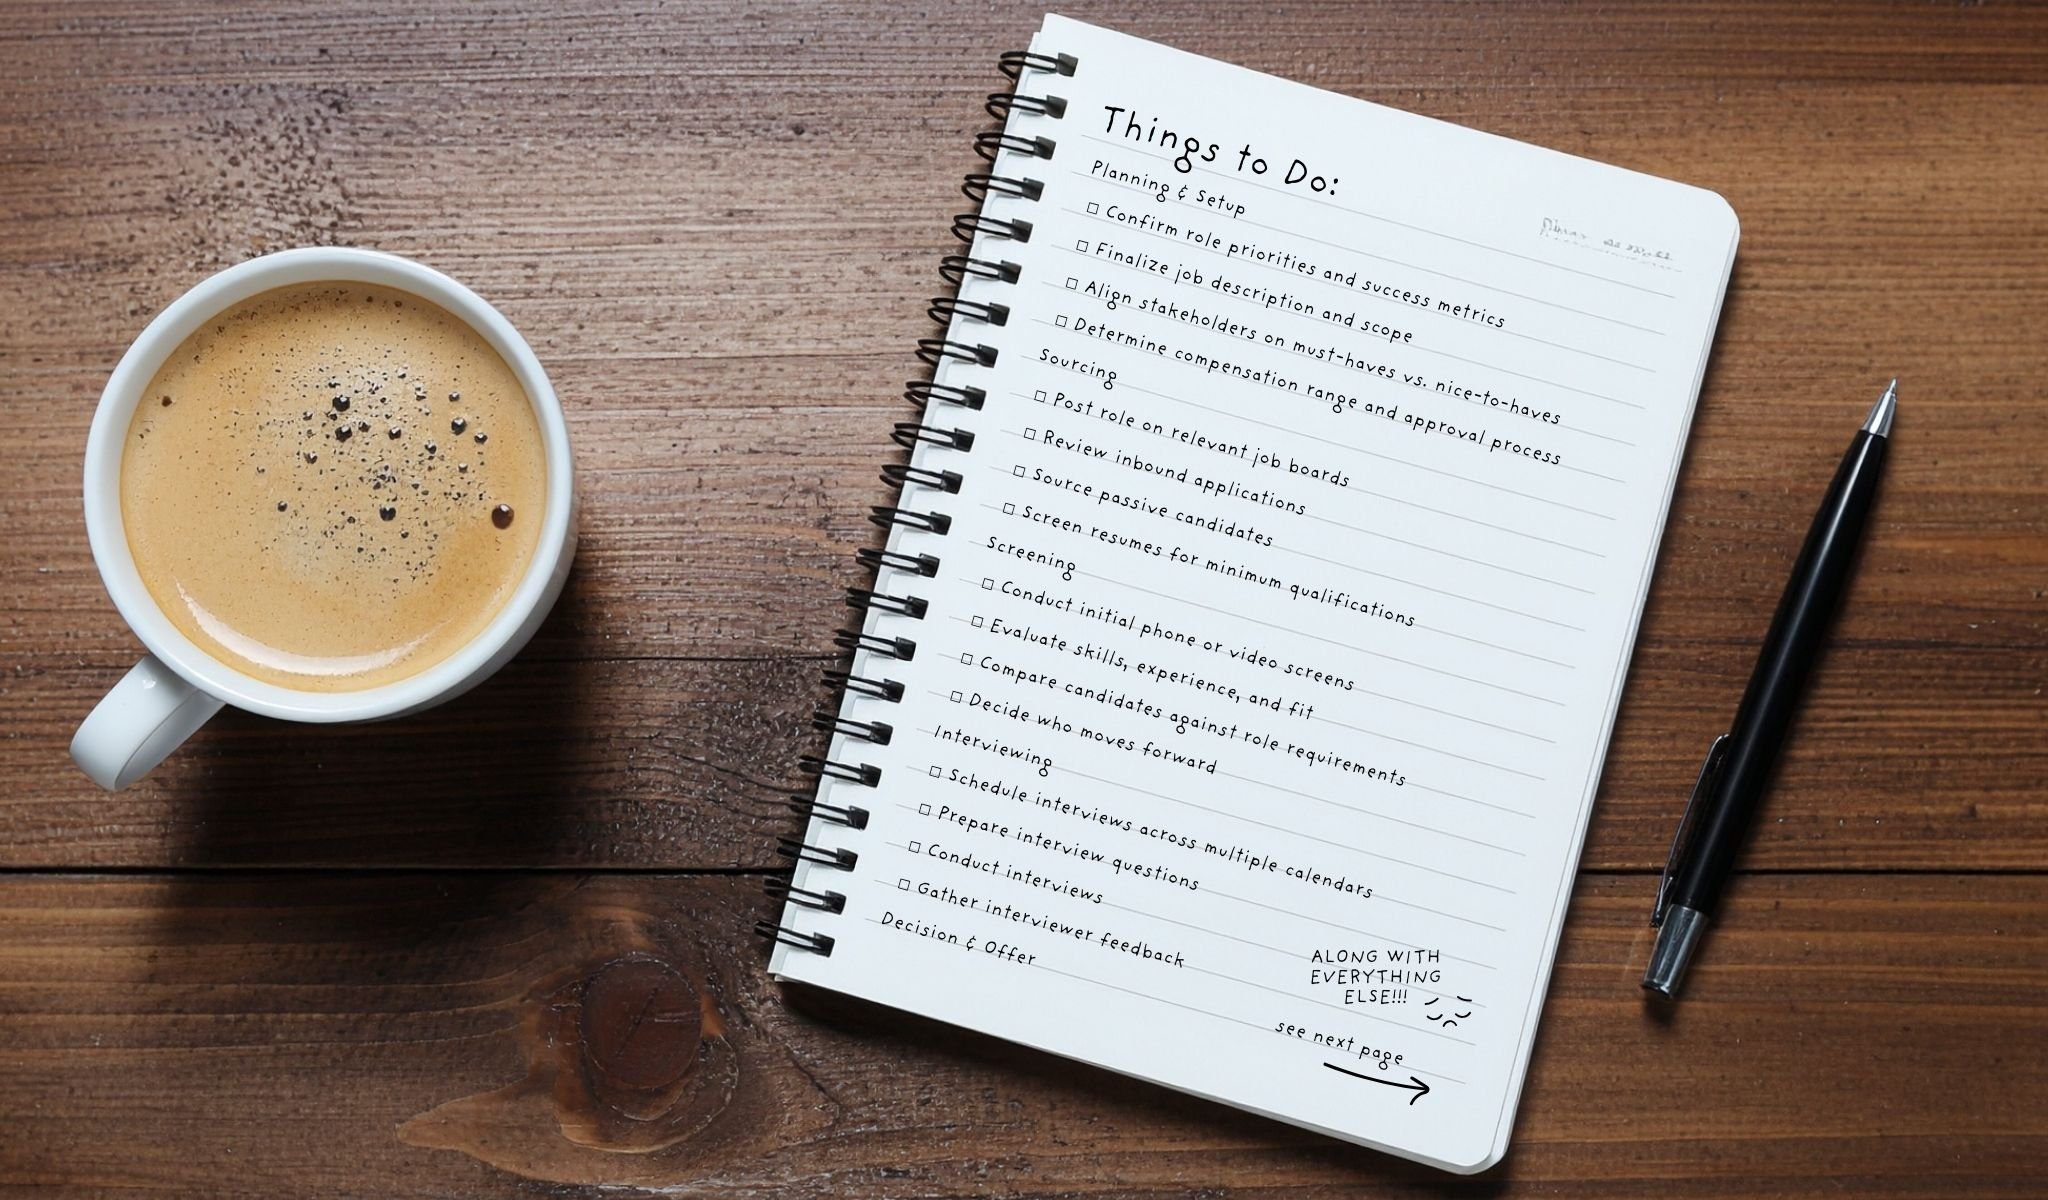 Things to Do:
Planning & Setup
☐ Confirm role priorities and success metrics
☐ Finalize job description and scope
☐ Align stakeholders on must-haves vs. nice-to-haves
☐ Determine compensation range and approval process
Sourcing
☐ Post role on relevant job boards
☐ Review inbound applications
☐ Source passive candidates
☐ Screen resumes for minimum qualifications
Screening
☐ Conduct initial phone or video screens
☐ Evaluate skills, experience, and fit
☐ Compare candidates against role requirements
☐ Decide who moves forward
Interviewing
☐ Schedule interviews across multiple calendars
☐ Prepare interview questions
☐ Conduct interviews
☐ Gather interviewer feedback
Decision & Offer
ALONG WITH
EVERYTHING
ELSE!!!
see next page